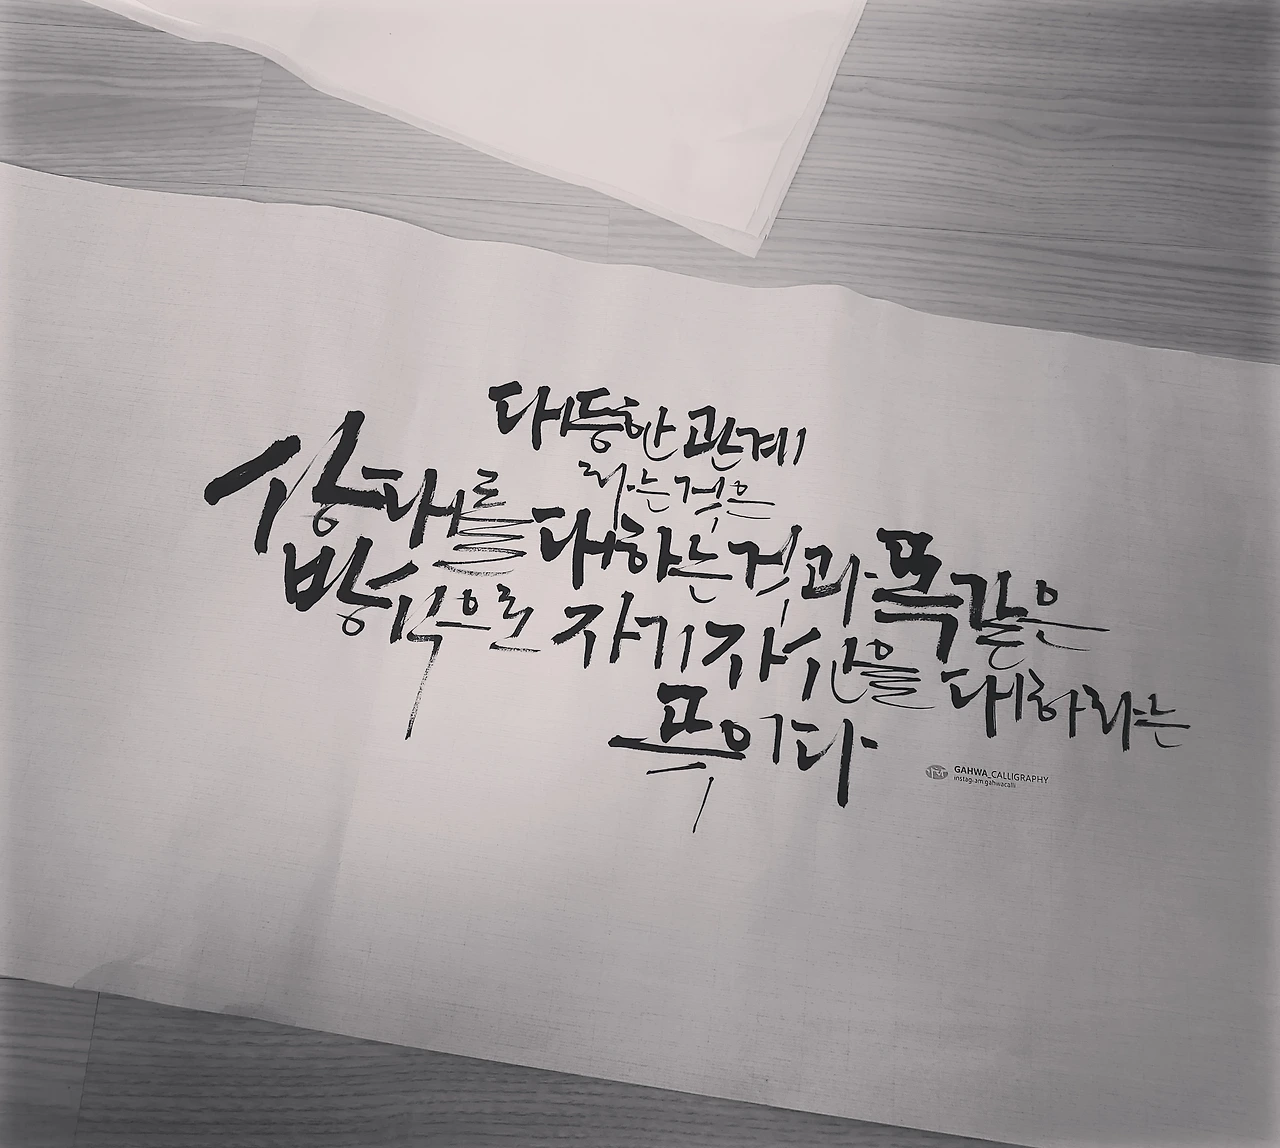 대등한 관계
라는 것은
상대를 대하는 것과 똑같은
방식으로 자기 자신을 대하라는
뜻이다
GAHWA_CALLIGRAPHY
instagram.gahwacalli